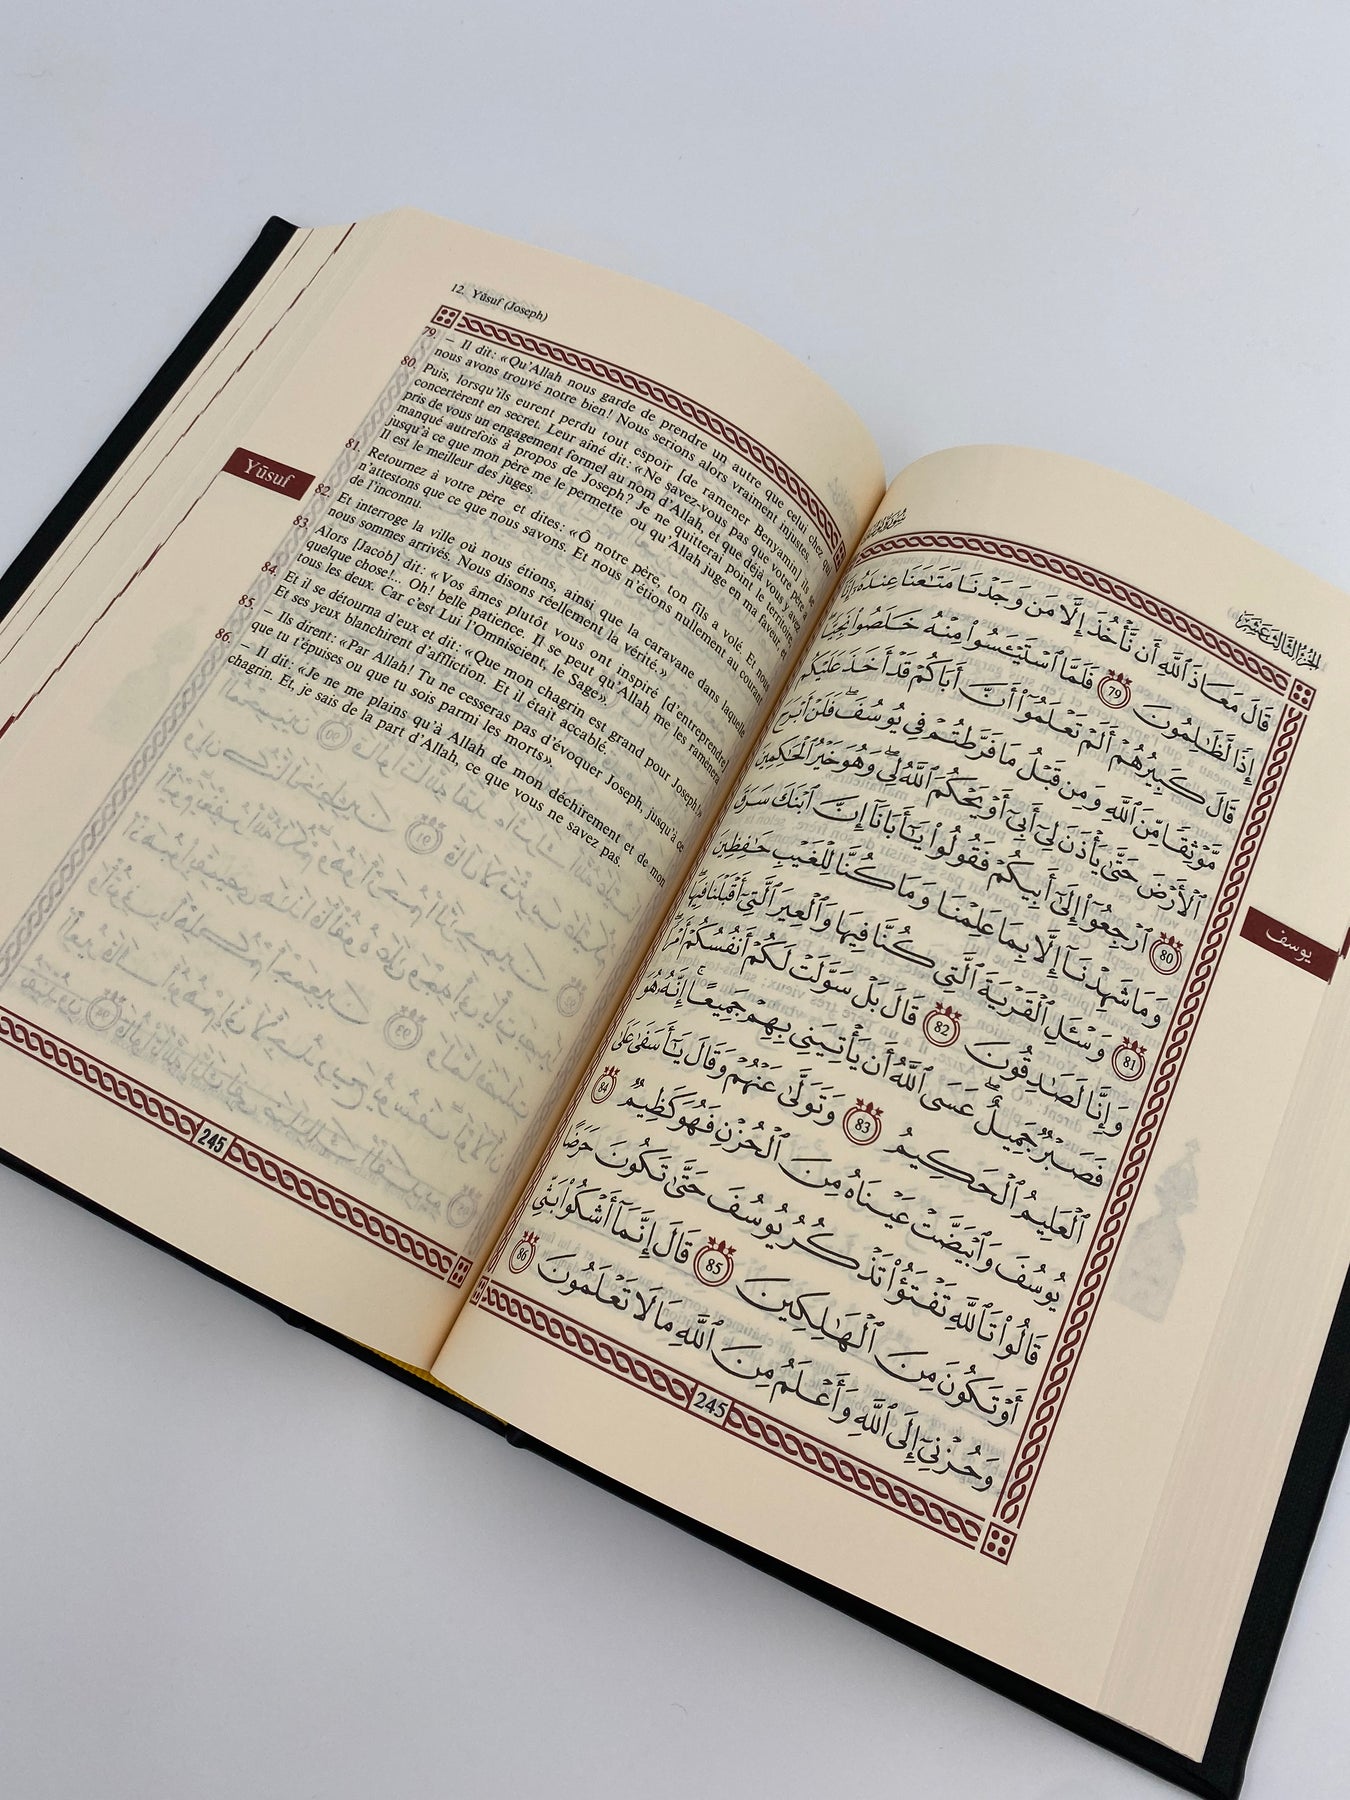 12. Yūsuf (Joseph)
79. – Il dit: «Qu'Allah nous garde de prendre un autre que celui chez qui
nous avons trouvé notre bien! Nous serions alors vraiment injustes.
80. Puis, lorsqu'ils eurent perdu tout espoir [de ramener Benyamin] ils se
concertèrent en secret. Leur aîné dit: «Ne savez-vous pas que votre père a
pris de vous un engagement formel au nom d'Allah, et que déjà vous y avez
manqué autrefois à propos de Joseph? Je ne quitterai point le territoire,
jusqu'à ce que mon père me le permette ou qu'Allah juge en ma faveur, et
Il est le meilleur des juges.
81. Retournez à votre père et dites: «Ô notre père, ton fils a volé. Et nous
n'attestons que ce que nous savons. Et nous n'étions nullement au courant
de l'inconnu.
82. Et interroge la ville où nous étions, ainsi que la caravane dans laquelle
nous sommes arrivés. Nous disons réellement la vérité.»
83. Alors [Jacob] dit: «Vos âmes plutôt vous ont inspiré [d'entreprendre]
quelque chose!... Oh! belle patience. Il se peut qu'Allah me les ramènera
tous les deux. Car c'est Lui l'Omniscient, le Sage».
84. Et il se détourna d'eux et dit: «Que mon chagrin est grand pour Joseph!»
Et ses yeux blanchirent d'affliction. Et il était accablé.
85. – Ils dirent: «Par Allah! Tu ne cesseras pas d'évoquer Joseph, jusqu'à ce
que tu t'épuises ou que tu sois parmi les morts».
86. – Il dit: «Je ne me plains qu'à Allah de mon déchirement et de mon
chagrin. Et, je sais de la part d'Allah, ce que vous ne savez pas.
Yūsuf
245
الجزء الثالث عشر
قَالَ مَعَاذَ ٱللَّهِ أَن نَّأْخُذَ إِلَّا مَن وَجَدْنَا مَتَٰعَنَا عِندَهُۥٓ إِنَّآ
إِذًا لَّظَٰلِمُونَ 79 فَلَمَّا ٱسْتَيْـَٔسُوا۟ مِنْهُ خَلَصُوا۟ نَجِيًّا
قَالَ كَبِيرُهُمْ أَلَمْ تَعْلَمُوٓا۟ أَنَّ أَبَاكُمْ قَدْ أَخَذَ عَلَيْكُم
مَّوْثِقًا مِّنَ ٱللَّهِ وَمِن قَبْلُ مَا فَرَّطتُمْ فِى يُوسُفَ فَلَنْ أَبْرَحَ
ٱلْأَرْضَ حَتَّىٰ يَأْذَنَ لِىٓ أَبِىٓ أَوْ يَحْكُمَ ٱللَّهُ لِى وَهُوَ خَيْرُ ٱلْحَٰكِمِينَ
80 ٱرْجِعُوٓا۟ إِلَىٰٓ أَبِيكُمْ فَقُولُوا۟ يَٰٓأَبَانَآ إِنَّ ٱبْنَكَ سَرَقَ
وَمَا شَهِدْنَآ إِلَّا بِمَا عَلِمْنَا وَمَا كُنَّا لِلْغَيْبِ حَٰفِظِينَ
81 وَسْـَٔلِ ٱلْقَرْيَةَ ٱلَّتِى كُنَّا فِيهَا وَٱلْعِيرَ ٱلَّتِىٓ أَقْبَلْنَا فِيهَا
وَإِنَّا لَصَٰدِقُونَ 82 قَالَ بَلْ سَوَّلَتْ لَكُمْ أَنفُسُكُمْ أَمْرًا
فَصَبْرٌ جَمِيلٌ عَسَى ٱللَّهُ أَن يَأْتِيَنِى بِهِمْ جَمِيعًا إِنَّهُۥ هُوَ
ٱلْعَلِيمُ ٱلْحَكِيمُ 83 وَتَوَلَّىٰ عَنْهُمْ وَقَالَ يَٰٓأَسَفَىٰ عَلَىٰ
يُوسُفَ وَٱبْيَضَّتْ عَيْنَاهُ مِنَ ٱلْحُزْنِ فَهُوَ كَظِيمٌ 84
قَالُوا۟ تَٱللَّهِ تَفْتَؤُا۟ تَذْكُرُ يُوسُفَ حَتَّىٰ تَكُونَ حَرَضًا
أَوْ تَكُونَ مِنَ ٱلْهَٰلِكِينَ 85 قَالَ إِنَّمَآ أَشْكُوا۟ بَثِّى
وَحُزْنِىٓ إِلَى ٱللَّهِ وَأَعْلَمُ مِنَ ٱللَّهِ مَا لَا تَعْلَمُونَ 86
يوسف
245